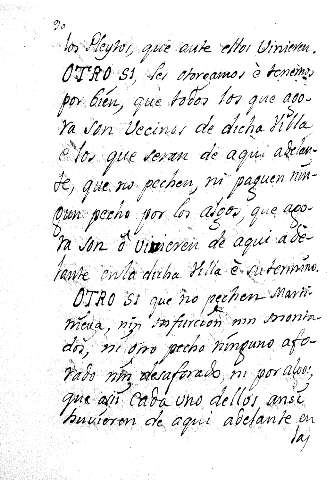 20
los Pleytos, que ante ellos vinieren.
OTRO SI, les otorgamos è tenemos
por bien, que todos los que ago-
ra son Vecinos de dicha Villa
è los que seran de aqui adelan-
te, que no pechen, ni paguen nin-
gun pecho por los algos, que ago-
ra son ô vinieren de aqui ade-
lante en la dicha Villa è su termino.
OTRO SI que no pechen Marti-
niega, nin Infurcion nin
dos, ni otro pecho ninguno afo-
rado nin desaforado, ni por algos,
que assi cada uno dellos ansi
huvieren de aqui adelante en